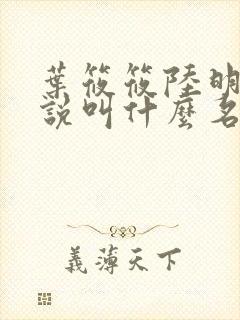 葉筱筱陸明
說叫什麼名
義薄天下